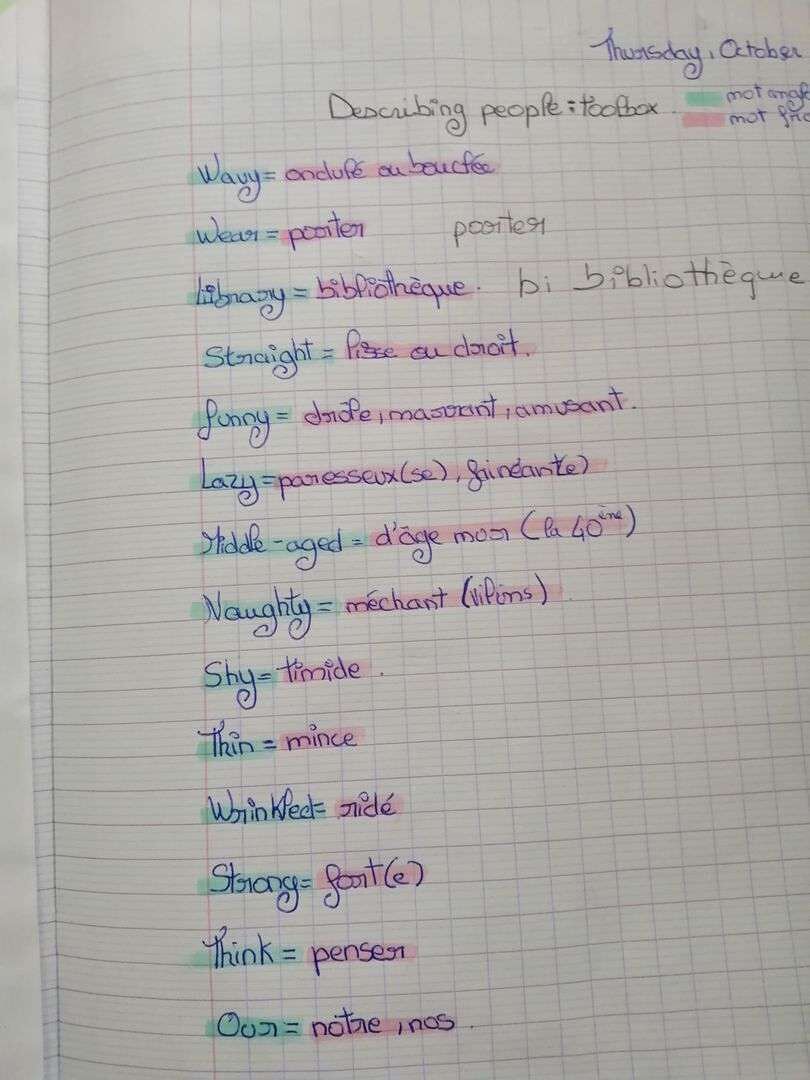 Thursday, October
Describing people : toolbox.
mot angl
mot fr
Wavy = ondulé ou bouclée
Wear = porter porter
Library = bibliothèque. bi bibliothèque
Straight = lisse ou droit.
funny = drôle, marrant, amusant.
Lazy = paresseux(se), fainéant(e)
Middle-aged = d'âge mûr (la 40ène)
Naughty = méchant (vilains)
Shy = timide.
Thin = mince
Wrinkled = ridé
Strong = fort(e)
Think = penser
Our = notre, nos.